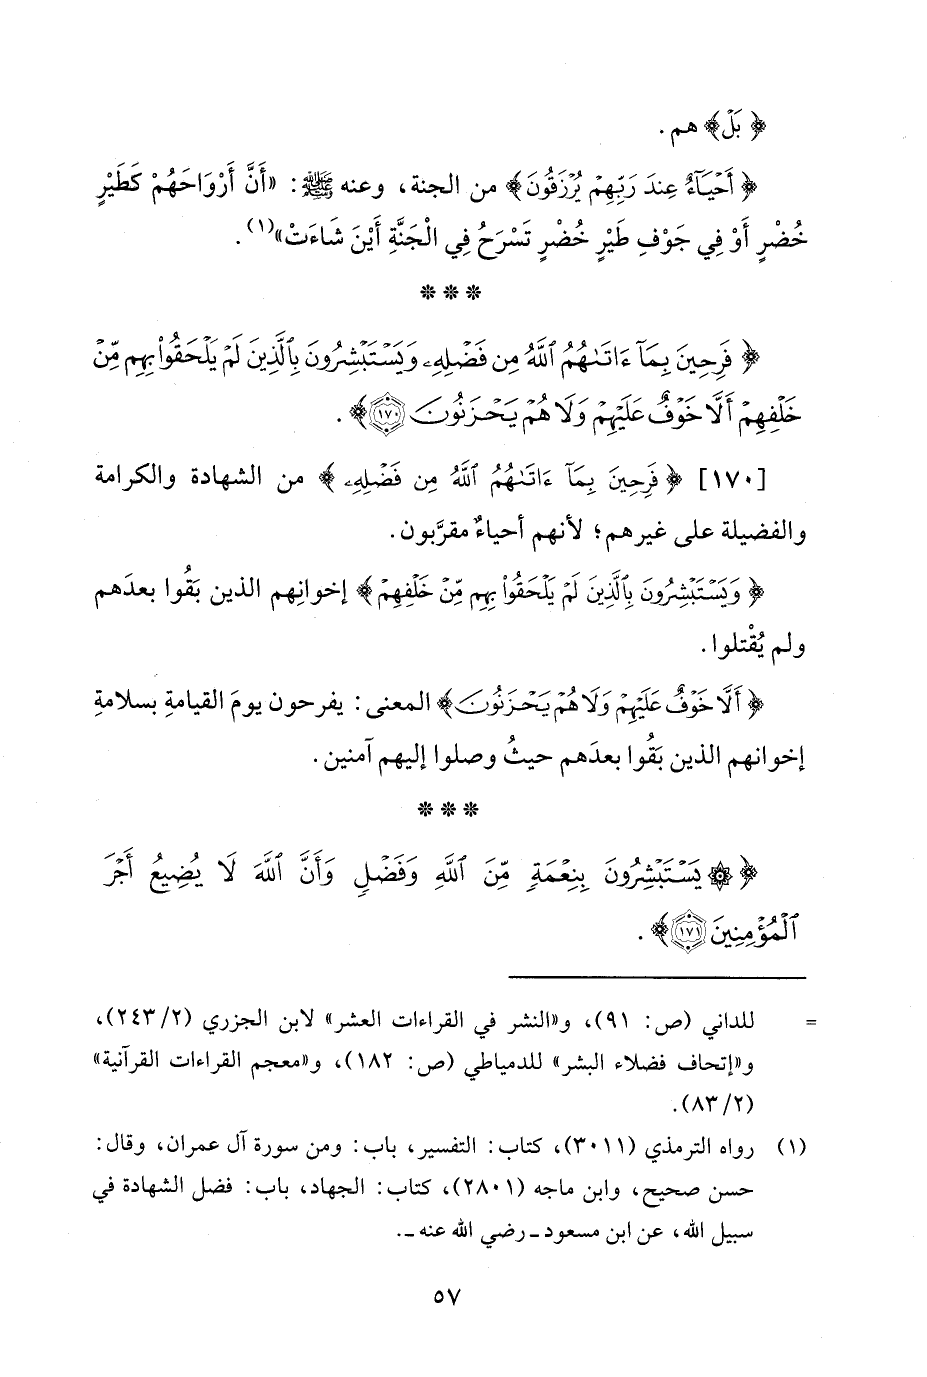 ﴿بَلْ﴾ هم.
﴿أَحْيَآءٌ عِندَ رَبِّهِمْ يُرْزَقُونَ﴾ من الجنة، وعنه ﷺ: «أَنَّ أَرْوَاحَهُمْ كَطَيْرٍ
خُضْرٍ أَوْ فِي جَوْفِ طَيْرٍ خُضْرٍ تَسْرَحُ فِي الْجَنَّةِ أَيْنَ شَاءَتْ»(١).
* * *
﴿فَرِحِينَ بِمَآ ءَاتَىٰهُمُ ٱللَّهُ مِن فَضْلِهِۦ وَيَسْتَبْشِرُونَ بِٱلَّذِينَ لَمْ يَلْحَقُوا۟ بِهِم مِّنْ
خَلْفِهِمْ أَلَّا خَوْفٌ عَلَيْهِمْ وَلَا هُمْ يَحْزَنُونَ ۝١٧٠﴾.
[١٧٠] ﴿فَرِحِينَ بِمَآ ءَاتَىٰهُمُ ٱللَّهُ مِن فَضْلِهِۦ﴾ من الشهادة والكرامة
والفضيلة على غيرهم؛ لأنهم أحياءٌ مقرَّبون.
﴿وَيَسْتَبْشِرُونَ بِٱلَّذِينَ لَمْ يَلْحَقُوا۟ بِهِم مِّنْ خَلْفِهِمْ﴾ إخوانِهم الذين بَقُوا بعدَهم
ولم يُقْتلوا.
﴿أَلَّا خَوْفٌ عَلَيْهِمْ وَلَا هُمْ يَحْزَنُونَ﴾ المعنى: يفرحون يومَ القيامةِ بسلامةِ
إخوانهم الذين بَقُوا بعدَهم حيثُ وصلوا إليهم آمنين.
* * *
﴿۞ يَسْتَبْشِرُونَ بِنِعْمَةٍ مِّنَ ٱللَّهِ وَفَضْلٍ وَأَنَّ ٱللَّهَ لَا يُضِيعُ أَجْرَ
ٱلْمُؤْمِنِينَ ۝١٧١﴾.
= للداني (ص: ٩١)، و«النشر في القراءات العشر» لابن الجزري (٢/ ٢٤٣)،
و«إتحاف فضلاء البشر» للدمياطي (ص: ١٨٢)، و«معجم القراءات القرآنية»
(٢/ ٨٣).
(١) رواه الترمذي (٣٠١١)، كتاب: التفسير، باب: ومن سورة آل عمران، وقال:
حسن صحيح، وابن ماجه (٢٨٠١)، كتاب: الجهاد، باب: فضل الشهادة في
سبيل الله، عن ابن مسعود ـ رضي الله عنه ـ.
٥٧